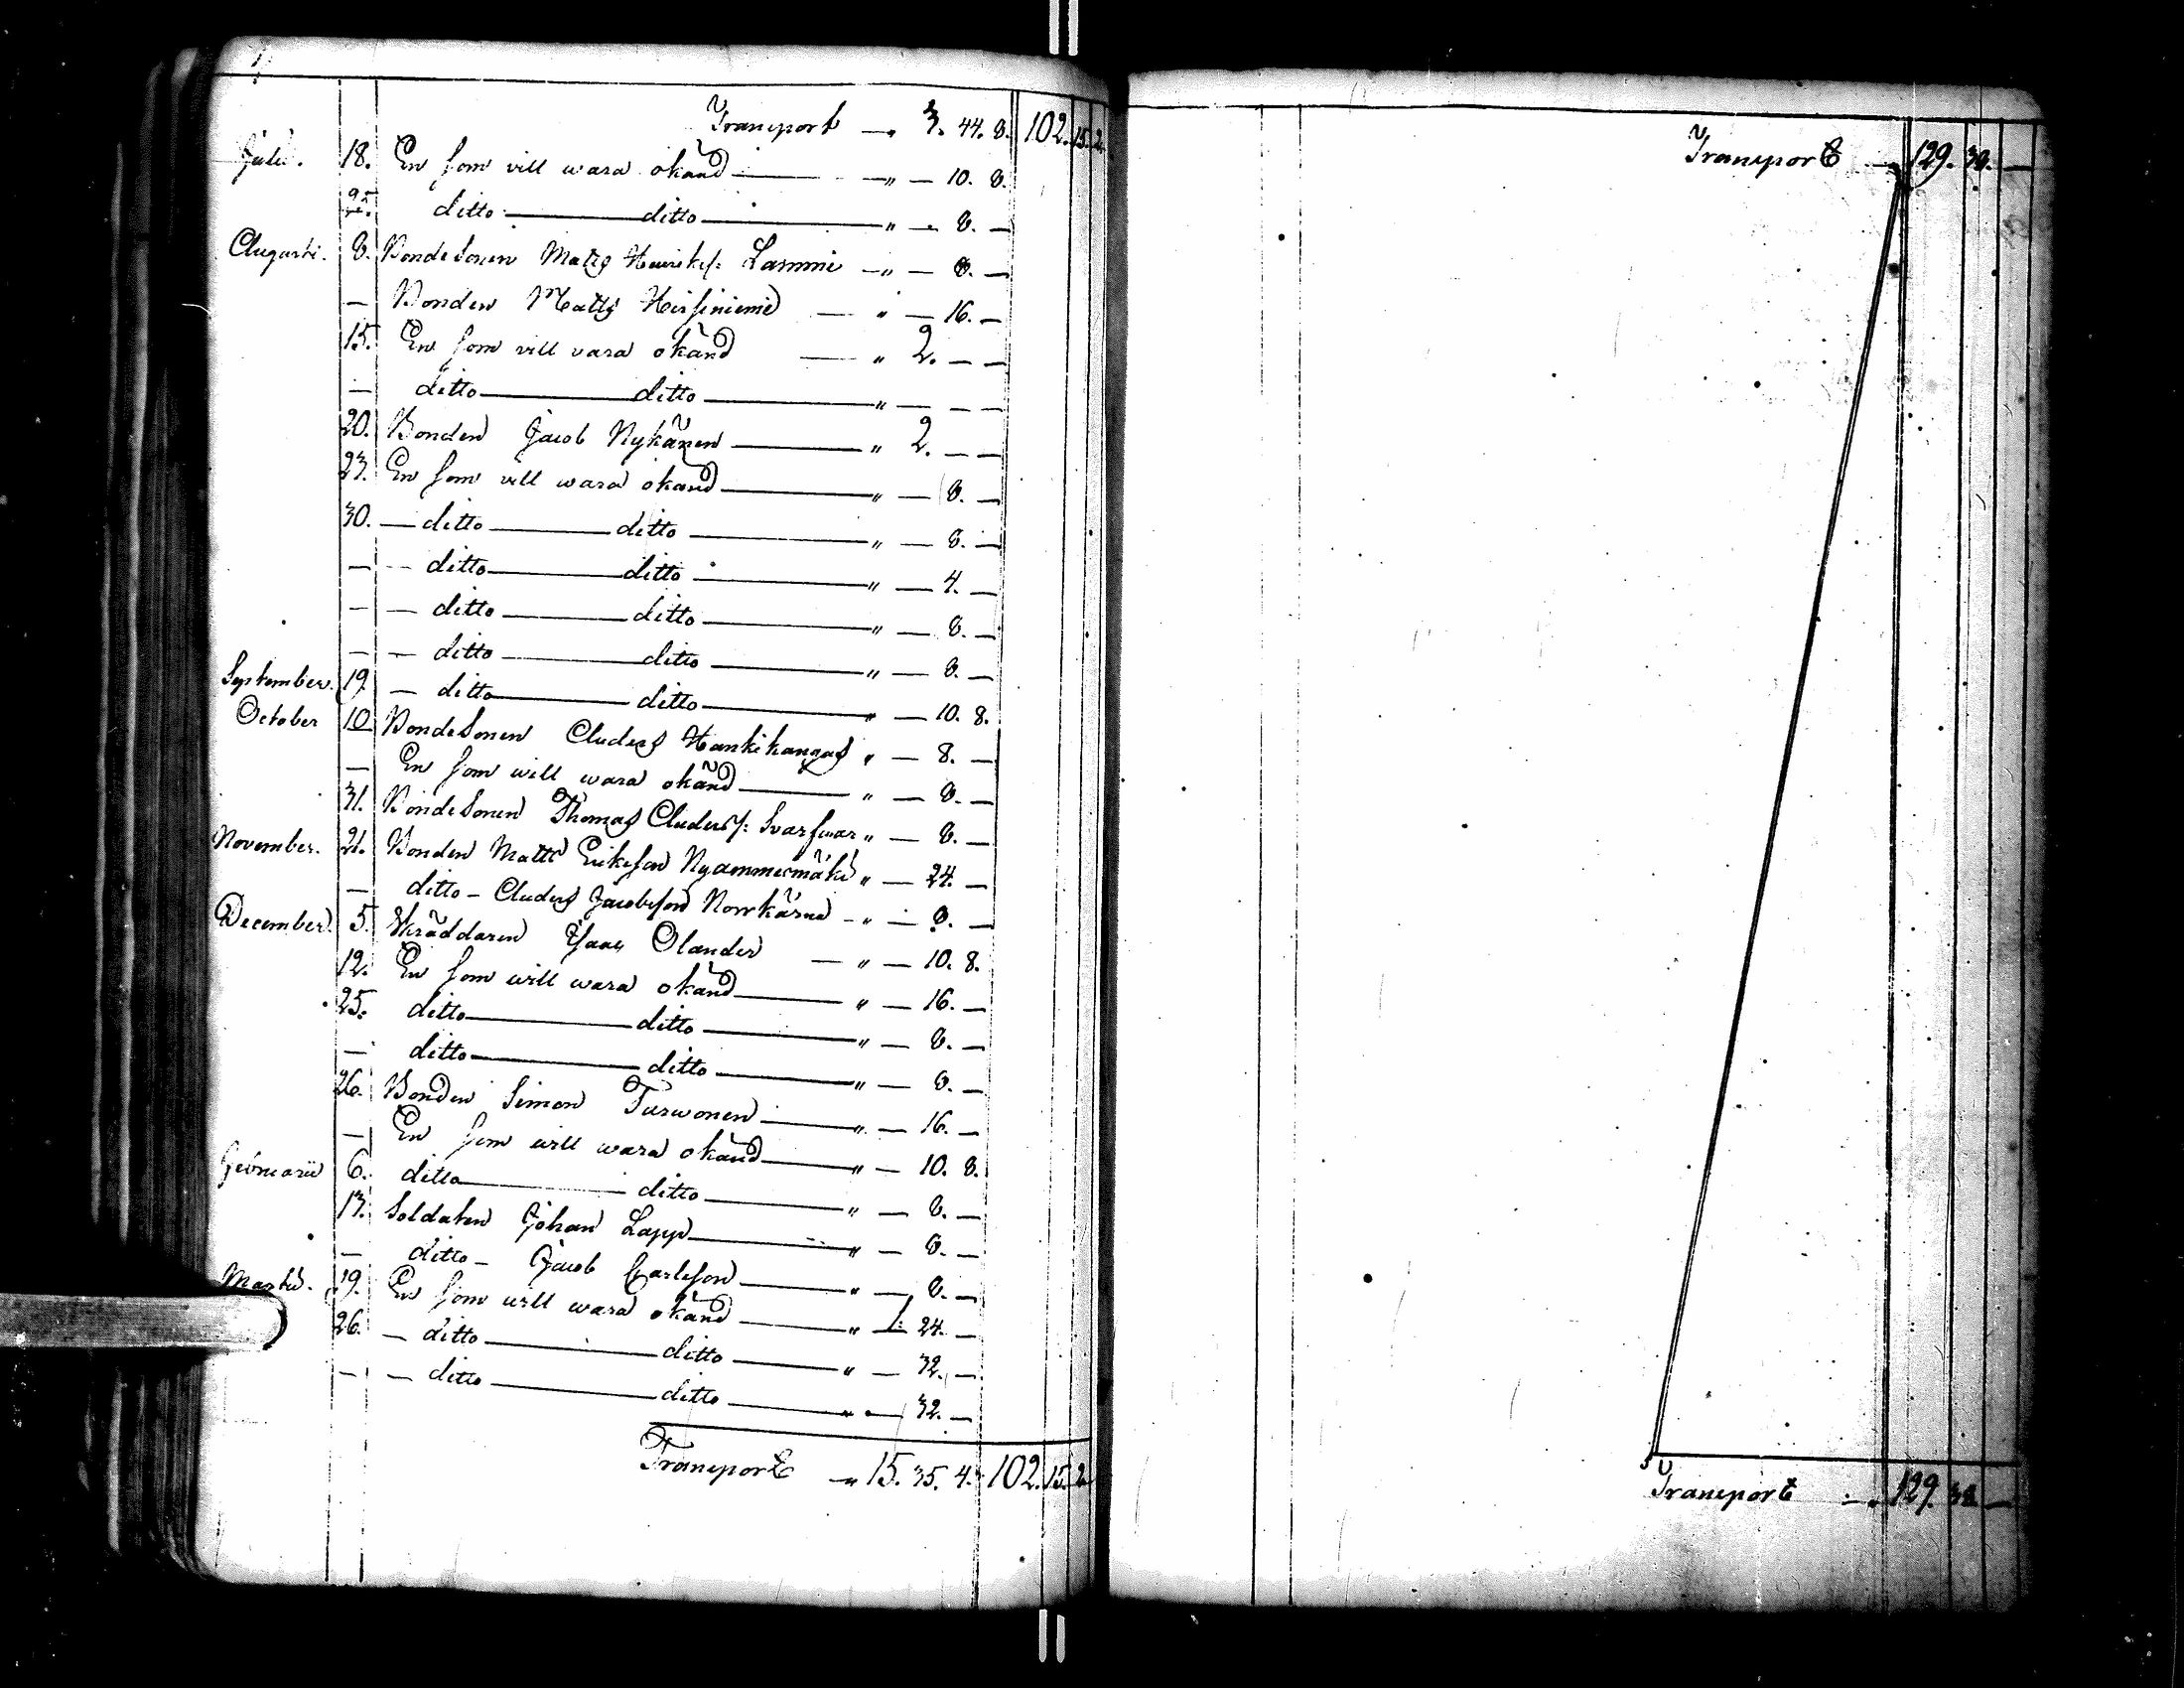 Transport — 3. 44. 8. 102. 15. 2.
Julii. 18. En som vill wara okänd — " — 10. 8.
25. ditto — ditto — " — 8. —
Augusti. 8. Bondesonen Matts Henriks: Lammi — " — 8. —
— Bonden Matts Hirsiniemi — " — 16. —
15. En som vill vara okänd — " 2. — —
— ditto — ditto — " — — —
20. Bonden Jacob Nykänen — " 2. — —
23. En som vill wara okänd — " — 8. —
30. — ditto — ditto — " — 8. —
— — ditto — ditto — " — 4. —
— — ditto — ditto — " — 8. —
— — ditto — ditto — " — 8. —
September. 19. — ditto — ditto — " — 10. 8.
October 10 Bondesonen Anders Hankikangas " — 8. —
— En som will wara okänd — " — 8. —
31. Bondesonen Thomas Anders: Svarfvar " — 8. —
November. 21. Bonden Matts Eriksson " — 24. —
— ditto — Anders Jacobsson Norrkärnä — " — 8. —
December. 5. Skräddaren Isaac Olander — " — 10. 8.
12. En som will wara okänd — " — 16. —
25. ditto — ditto — " — 8. —
— ditto — ditto — " — 8. —
26. Bonden Simon Turwonen — " — 16. —
— En som will wara okänd — " — 10. 8.
Februarii 6. ditto — ditto — " — 8. —
13. Soldaten Johan Lapp — " — 8. —
— ditto — Jacob Carlsson — " — 8. —
Martii. 19. En som will wara okänd — " 1. 24. —
26. — ditto — ditto — " — 32. —
— — ditto — ditto — " — 32. —
Transport — " 15. 35. 4. 102. 15. 2
Transport — " 129. 38. —
Transport — " 129. 38 —